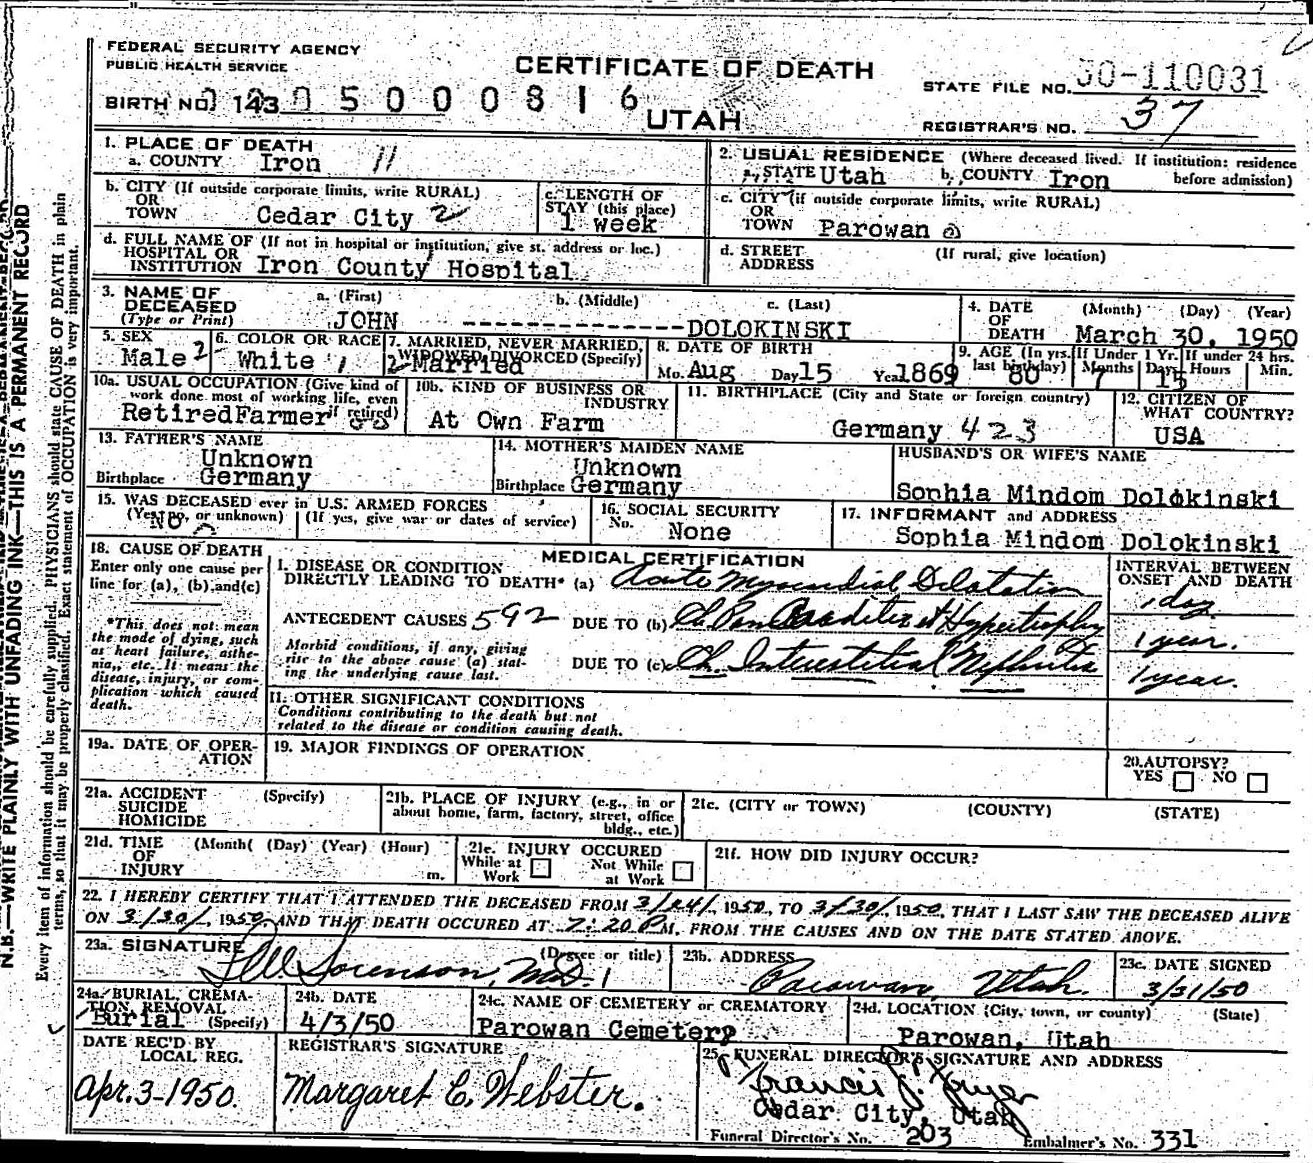 FEDERAL SECURITY AGENCY
PUBLIC HEALTH SERVICE
CERTIFICATE OF DEATH
UTAH
BIRTH NO. 143 0 5 0 0 0 8 1 6
STATE FILE NO. 50-110031
REGISTRAR'S NO. 37
N.B.—WRITE PLAINLY WITH UNFADING INK—THIS IS A PERMANENT RECORD
Every item of information should be carefully supplied. PHYSICIANS should state CAUSE OF DEATH in plain
terms, so that it may be properly classified. Exact statement of OCCUPATION is very important.
1. PLACE OF DEATH
a. COUNTY Iron 11
2. USUAL RESIDENCE (Where deceased lived. If institution: residence
a. STATE Utah b. COUNTY Iron before admission)
b. CITY (If outside corporate limits, write RURAL)
OR
TOWN Cedar City 2
c. LENGTH OF
STAY (this place)
1 week
c. CITY (if outside corporate limits, write RURAL)
OR
TOWN Parowan
d. FULL NAME OF (If not in hospital or institution, give st. address or loc.)
HOSPITAL OR
INSTITUTION Iron County Hospital
d. STREET (If rural, give location)
ADDRESS
3. NAME OF DECEASED (Type or Print)
a. (First) b. (Middle) c. (Last)
JOHN --------------- DOLOKINSKI
4. DATE OF DEATH (Month) (Day) (Year)
March 30, 1950
5. SEX
Male 2
6. COLOR OR RACE
White 1
7. MARRIED, NEVER MARRIED,
WIDOWED DIVORCED (Specify)
2 Married
8. DATE OF BIRTH
Mo. Aug Day 15 Yea 1869
9. AGE (In yrs. last birthday) 80
If Under 1 Yr. Months 7 Days 15
If under 24 hrs. Hours Min.
10a. USUAL OCCUPATION (Give kind of
work done most of working life, even
if retired) RetiredFarmer
10b. KIND OF BUSINESS OR
INDUSTRY
At Own Farm
11. BIRTHPLACE (City and State or foreign country)
Germany 423
12. CITIZEN OF
WHAT COUNTRY?
USA
13. FATHER'S NAME
Unknown
Birthplace Germany
14. MOTHER'S MAIDEN NAME
Unknown
Birthplace Germany
HUSBAND'S OR WIFE'S NAME
Sophia Mindom Dolokinski
15. WAS DECEASED ever in U.S. ARMED FORCES
(Yes, no, or unknown) (If yes, give war or dates of service)
No
16. SOCIAL SECURITY
No. None
17. INFORMANT and ADDRESS
Sophia Mindom Dolokinski
18. CAUSE OF DEATH
Enter only one cause per
line for (a), (b), and (c)
*This does not mean
the mode of dying, such
as heart failure, asthe-
nia, etc. It means the
disease, injury, or com-
plication which caused
death.
MEDICAL CERTIFICATION
INTERVAL BETWEEN
ONSET AND DEATH
I. DISEASE OR CONDITION
DIRECTLY LEADING TO DEATH* (a) Acute Myocardial Dilatation
1 day
ANTECEDENT CAUSES 592 DUE TO (b) Ch. Pan Carditis & Hypertrophy
1 year.
Morbid conditions, if any, giving
rise to the above cause (a) stat-
ing the underlying cause last.
DUE TO (c) Ch. Interstitial Nephritis
1 year.
II. OTHER SIGNIFICANT CONDITIONS
Conditions contributing to the death but not
related to the disease or condition causing death.
19a. DATE OF OPER-
ATION
19. MAJOR FINDINGS OF OPERATION
20. AUTOPSY?
YES NO
21a. ACCIDENT (Specify)
SUICIDE
HOMICIDE
21b. PLACE OF INJURY (e.g., in or
about home, farm, factory, street, office
bldg., etc.)
21c. (CITY or TOWN) (COUNTY) (STATE)
21d. TIME (Month( (Day) (Year) (Hour)
OF
INJURY m.
21e. INJURY OCCURED
While at Work Not While at Work
21f. HOW DID INJURY OCCUR?
22. I HEREBY CERTIFY THAT I ATTENDED THE DECEASED FROM 3/24/, 1950, TO 3/30/, 1950, THAT I LAST SAW THE DECEASED ALIVE
ON 3/30/, 1950, AND THAT DEATH OCCURED AT 7:20 P M. FROM THE CAUSES AND ON THE DATE STATED ABOVE.
23a. SIGNATURE (Degree or title)
Sorenson, M.D. 1
23b. ADDRESS
Parowan, Utah.
23c. DATE SIGNED
3/31/50
24a. BURIAL, CREMA-
TION, REMOVAL
Burial (Specify)
24b. DATE
4/3/50
24c. NAME OF CEMETERY or CREMATORY
Parowan Cemetery
24d. LOCATION (City, town, or county) (State)
Parowan, Utah
DATE REC'D BY
LOCAL REG.
Apr. 3-1950.
REGISTRAR'S SIGNATURE
Margaret C. Webster.
25. FUNERAL DIRECTOR'S SIGNATURE AND ADDRESS
Francis
Cedar City, Utah
Funeral Director's No. 203 Embalmer's No. 331